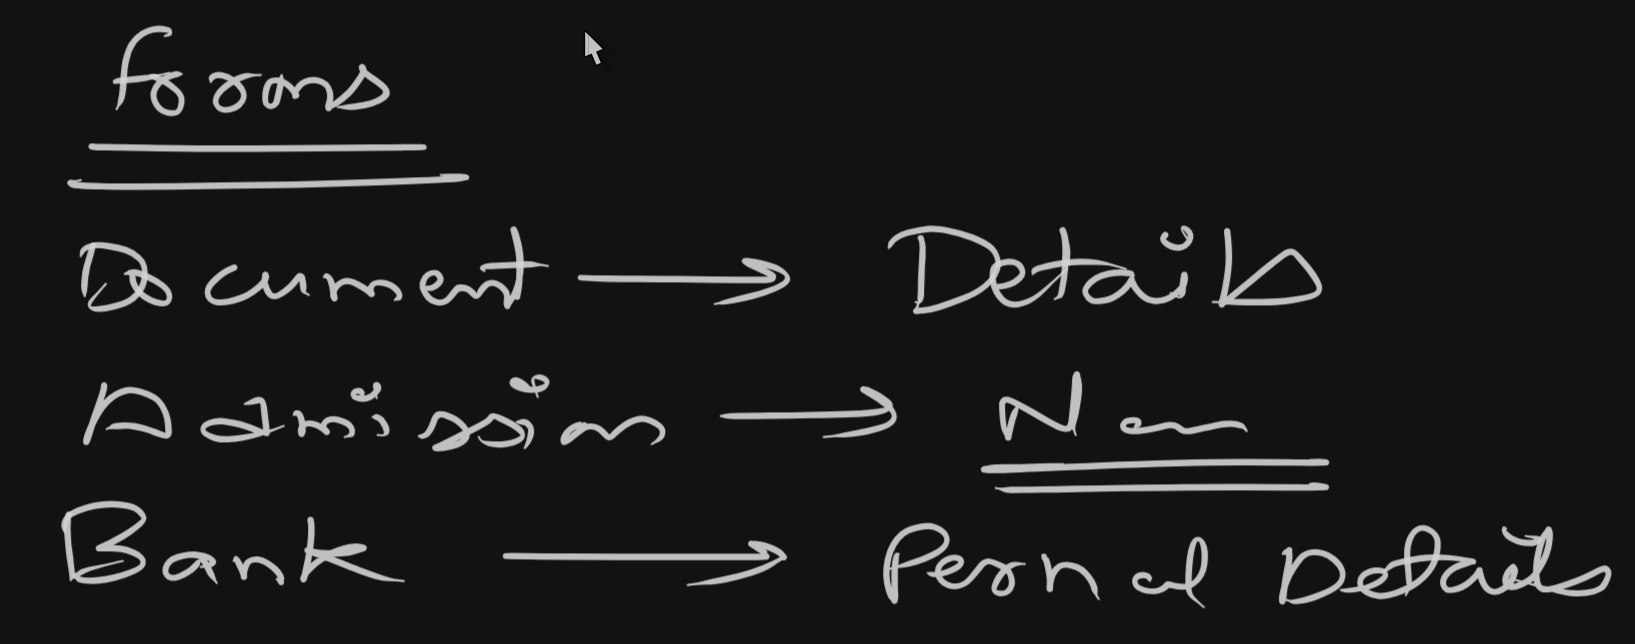 forms
Document → Details
Admission →
Bank → Pernal Details